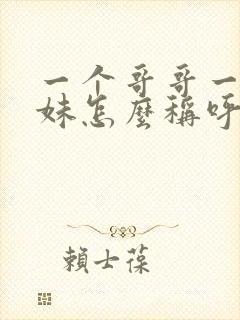 一个哥哥一
妹怎麼稱呼
賴士葆